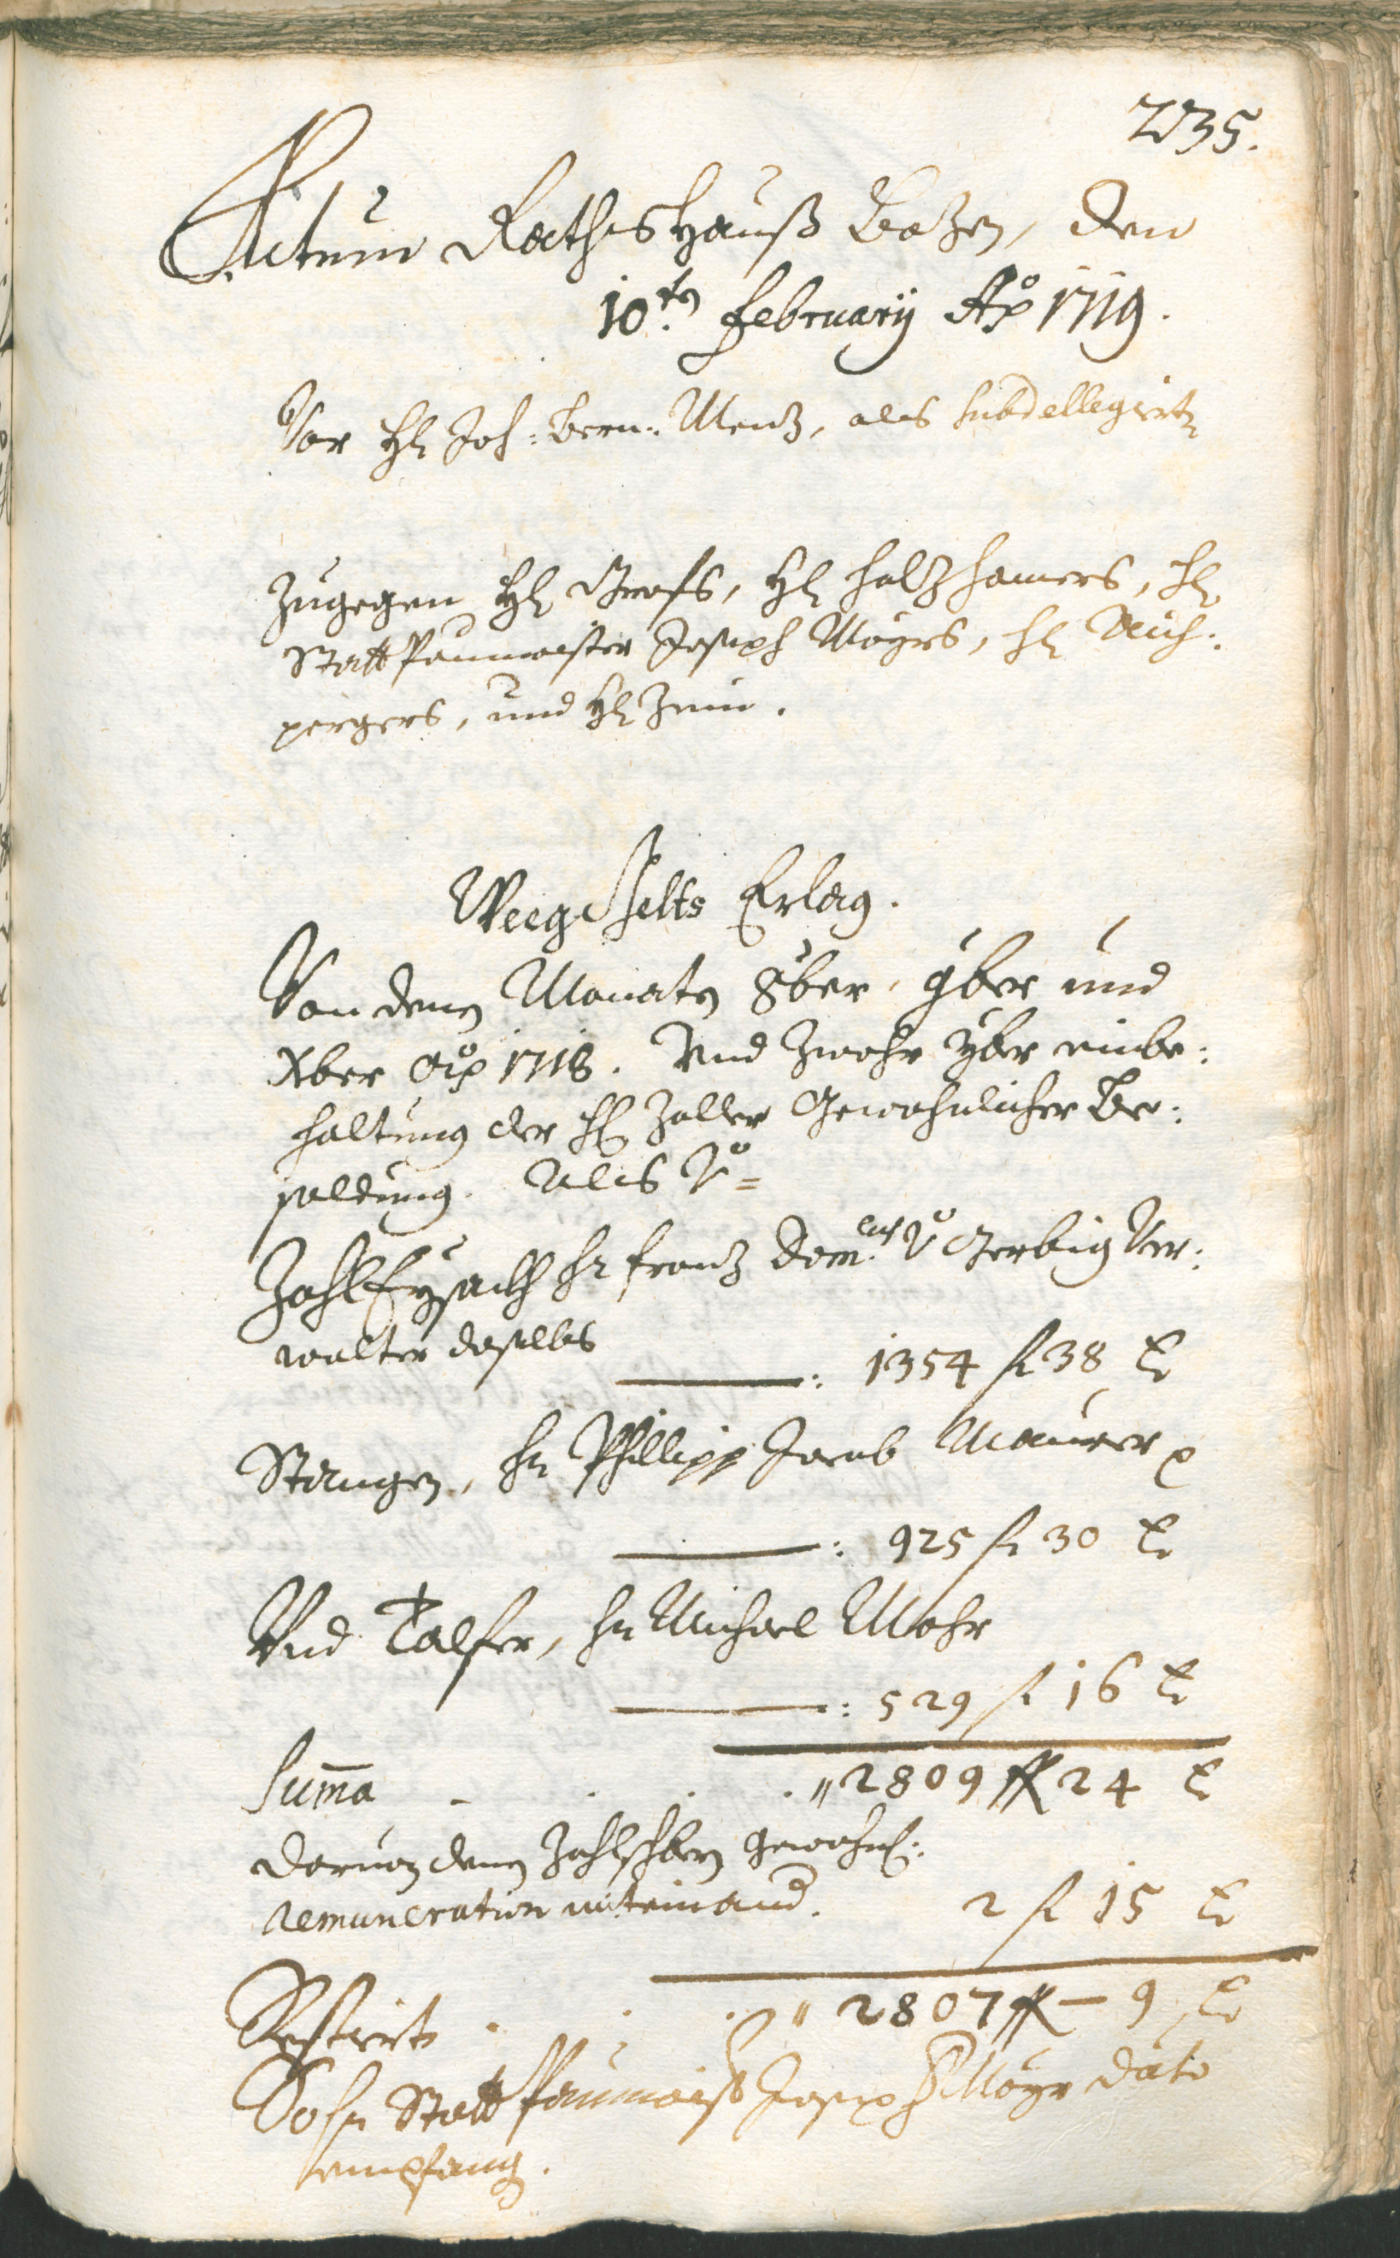 235.
Actum Rathshauß Bozen, den
10.ten February Aõ 1719.
Vor H: Joh: Bern: Menz, als subdellegirtn
Zugegen H: Grafs, H: Holzhamers, H:
Stattpaumaister Joseph Mayrs, H: Aich:
pergers, und H: Zenin.
Weeggelts Erlag.
Von denen Monaten 8ber, 9ber und
Xber aõ 1718. Und zwahr yber einbe:
haltung der H: Zoller gewohnlicher Be:
soldung. Als Võ =
Zohl Eysackh H: Franz Dom:cus Võ Gerbig Ver:
walter daselbs
: 1354 fl 38 xr
Stangen, H: Phillipp Jacob Maurer
: 925 fl 30 xr
Und Talfer, H: Michael Mohr
: 529 fl 16 xr
Suma . . . " 2809 fl 24 xr
Daruon denen Zohlschbern gewohnl:
remuneration miteinand. 2 fl 15 xr
Restirt . . . " 2807 fl — 9 xr
So H: Stattpaumaister Joseph Mayr dato
empfang.